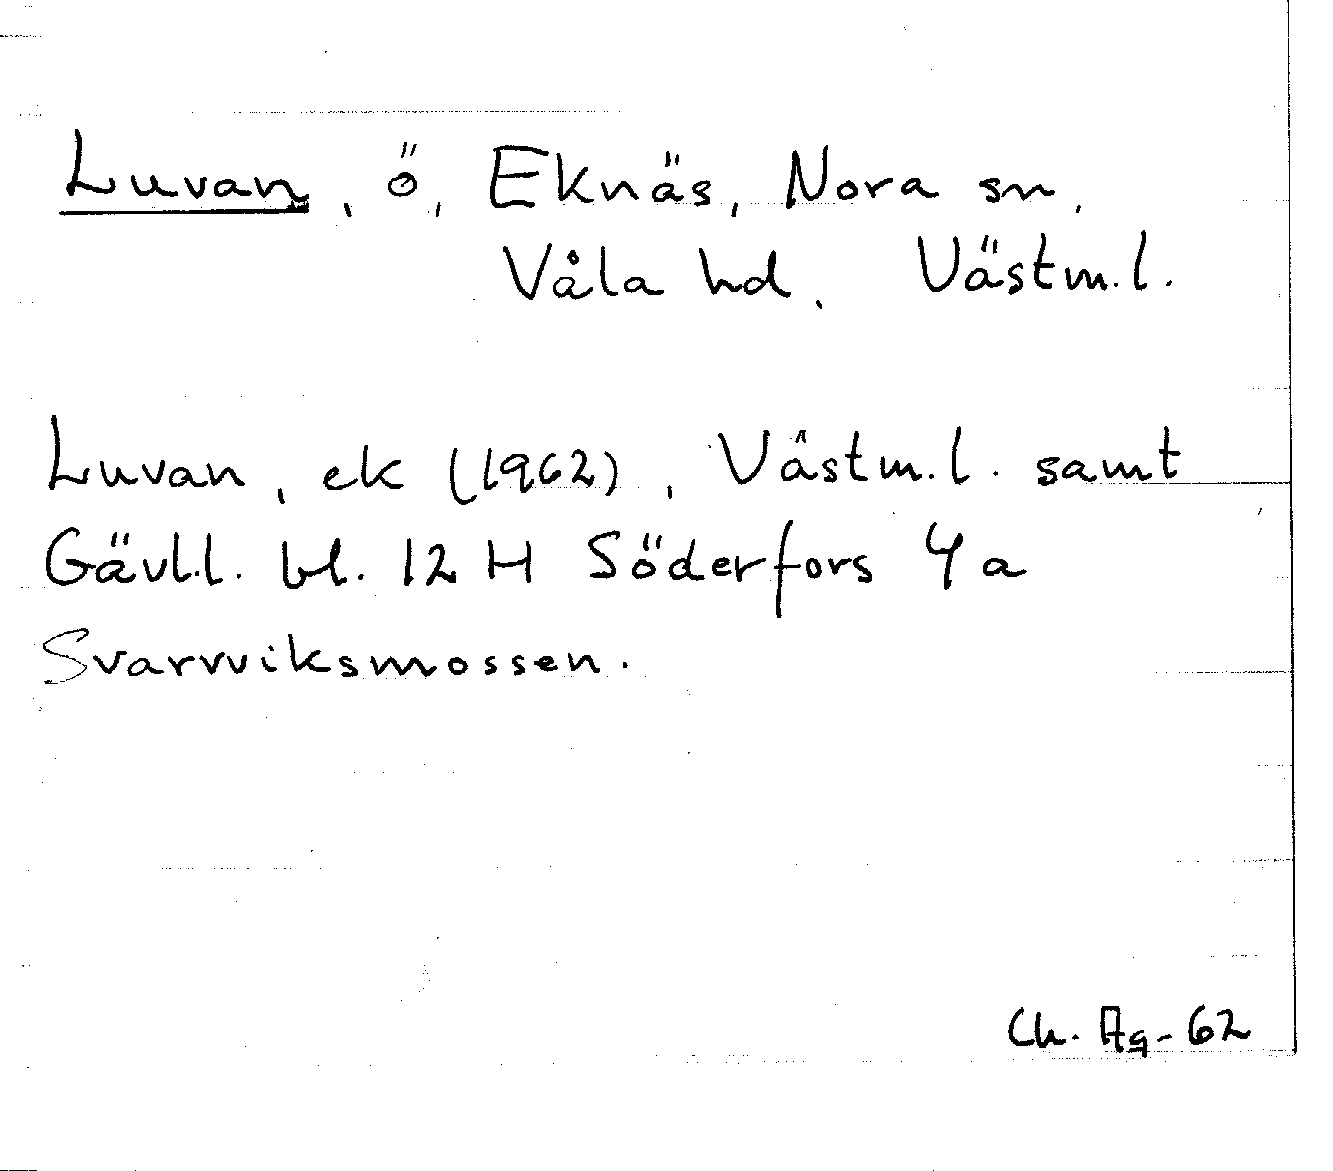 Luvan, ö, Eknäs, Nora sn,
Våla hd, Västm.l.
Luvan, ek (1962), Västm.l. samt
Gävl.l. bl. 12 H Söderfors 4 a
Svarvviksmossen.
Ch. Ag-62